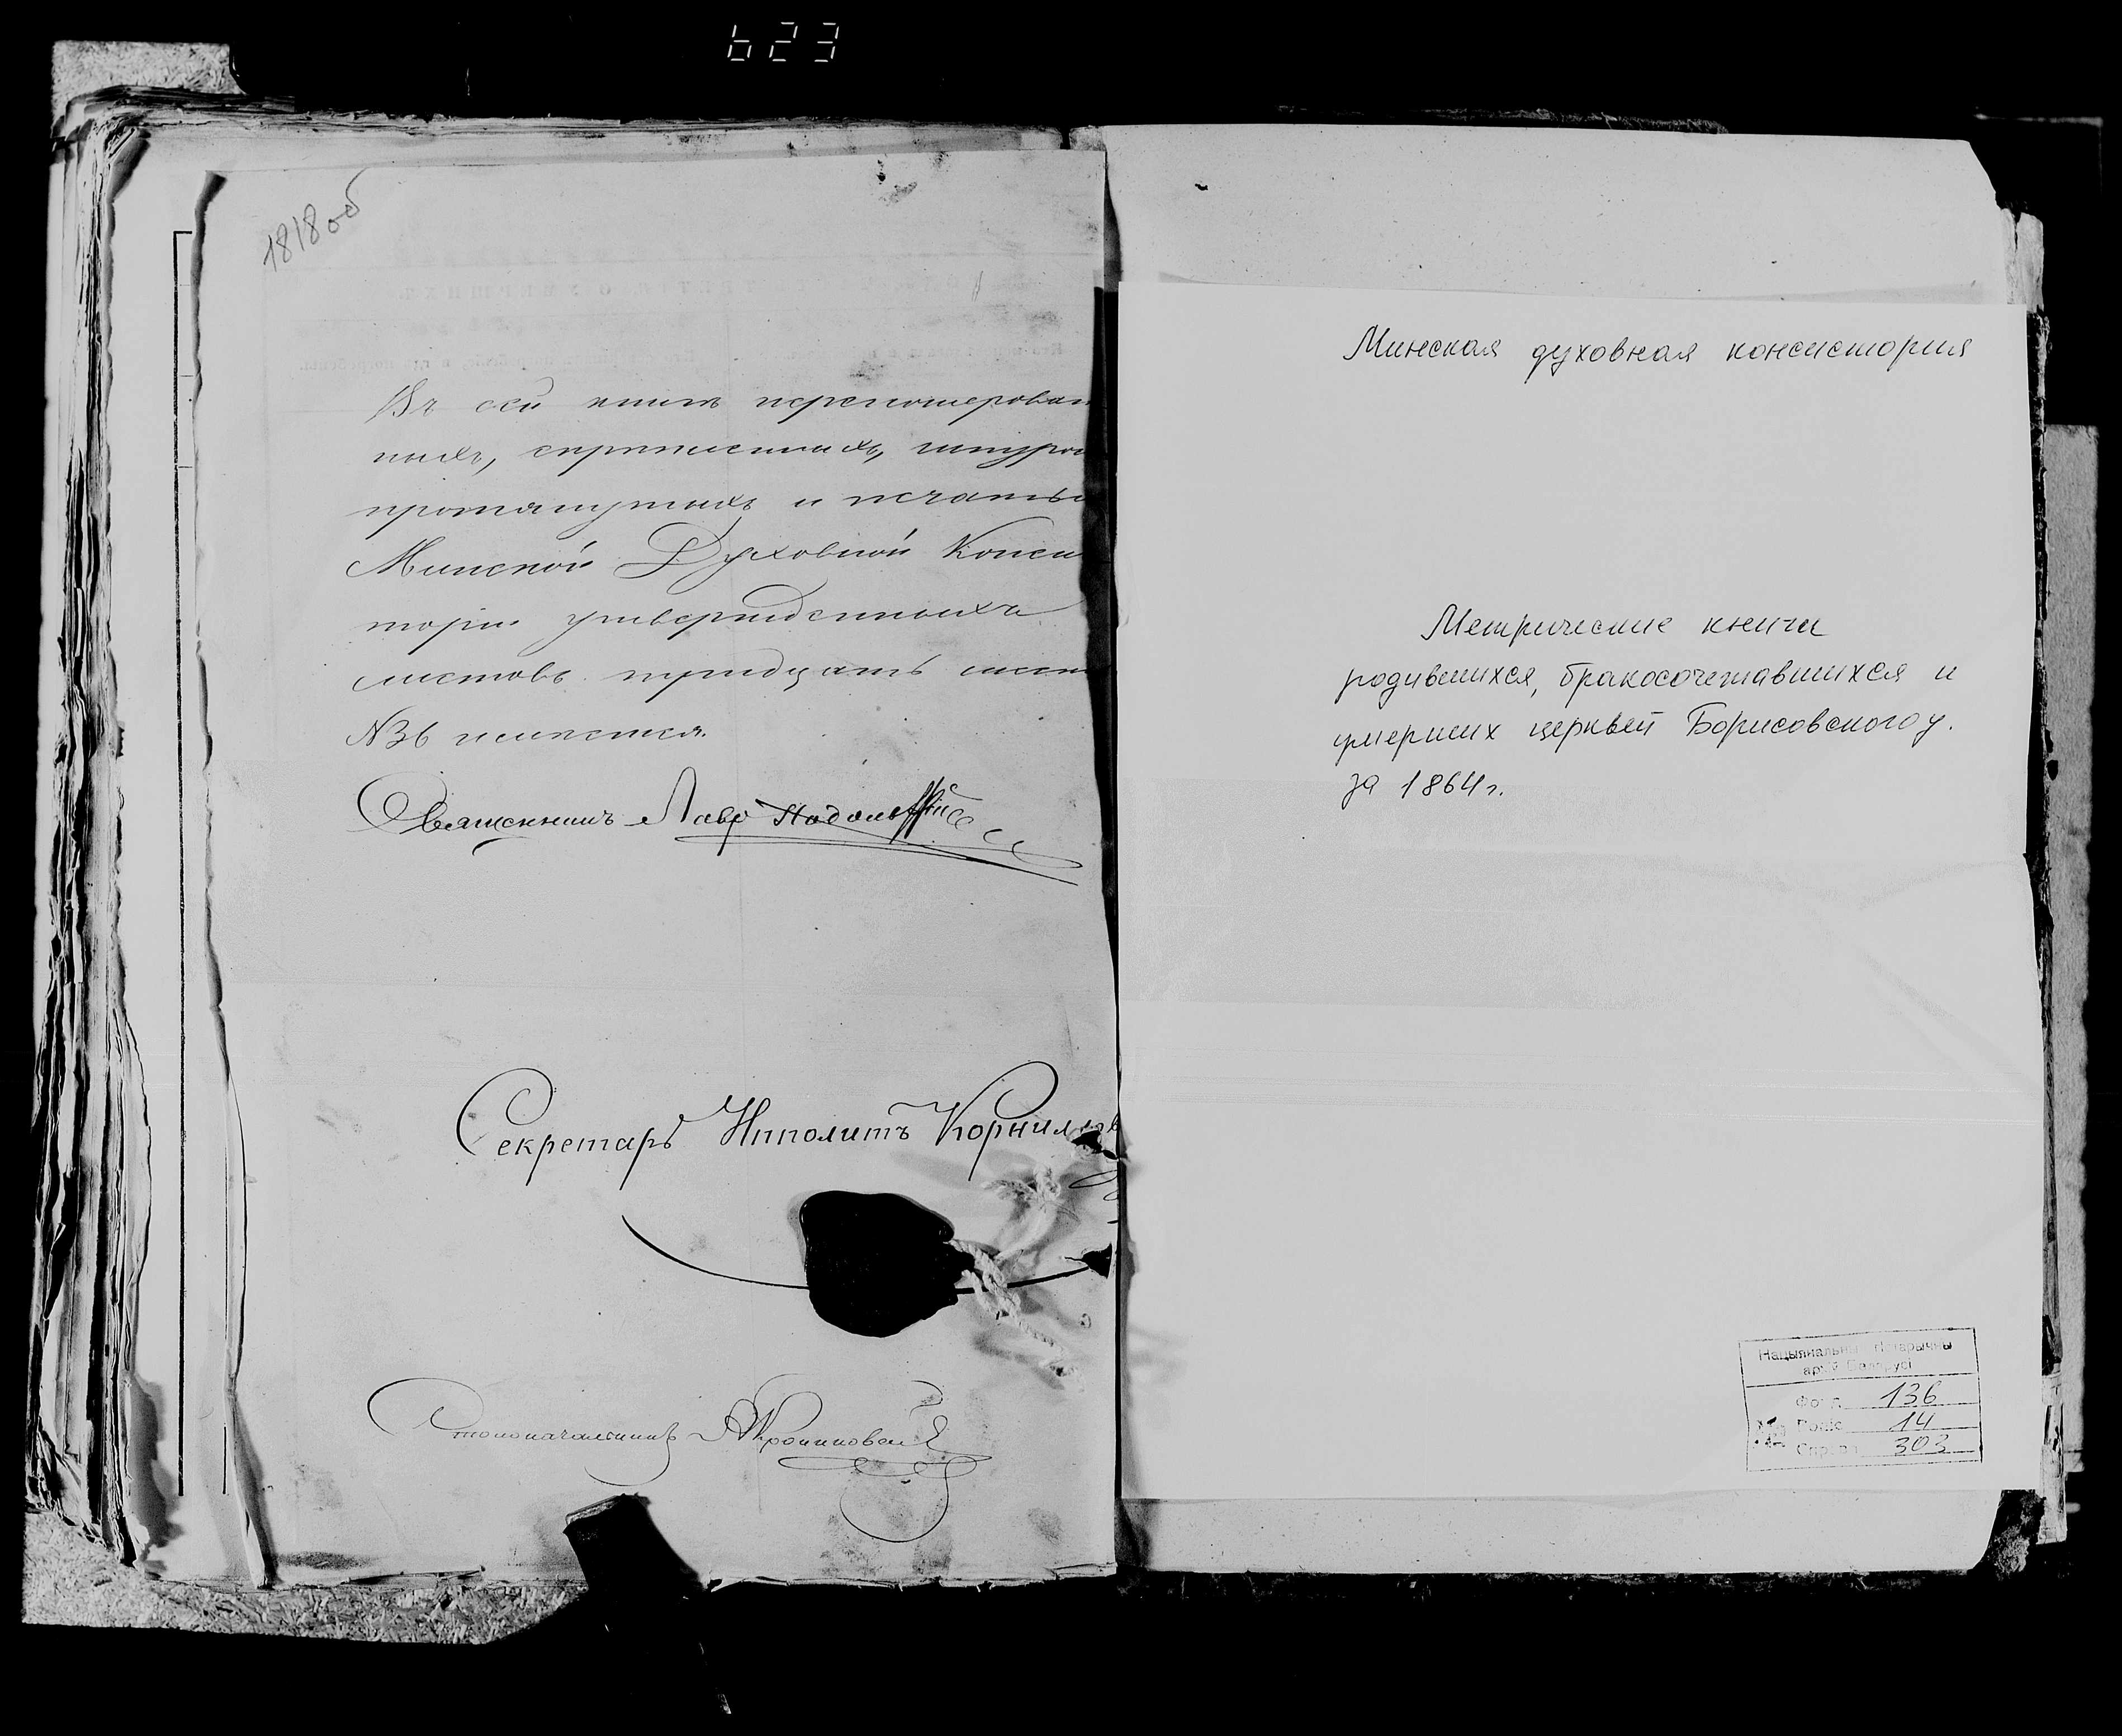 623
1818об
Въ сей книгѣ перенумерован
ныхъ, скрѣпленныхъ, шнуро
протянутыхъ и печатью
Минской Духовной Конси
торіи утвержденныхъ
листовъ тридцать шесть
№36 имѣется.
Священникъ Лавр
Секретарь Ипполитъ Корнилов
Столоначальникъ
Минская духовная консистория
Метрические книги
родившихся, бракосочетавшихся и
умерших церквей Борисовского у.
за 1864 г.
Нацыянальны гістарычны
архіў Беларусі
Фонд 136
Вопіс 14
Справа 303